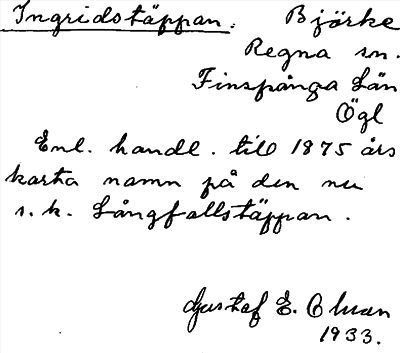 Ingridstäppan. Björke
Regna sn.
Finspånga län
Ögl
Enl. handl. till 1875 års
karta namn på den nu
s.k. Långfallstäppan.
Gustaf E. Olman
1933.